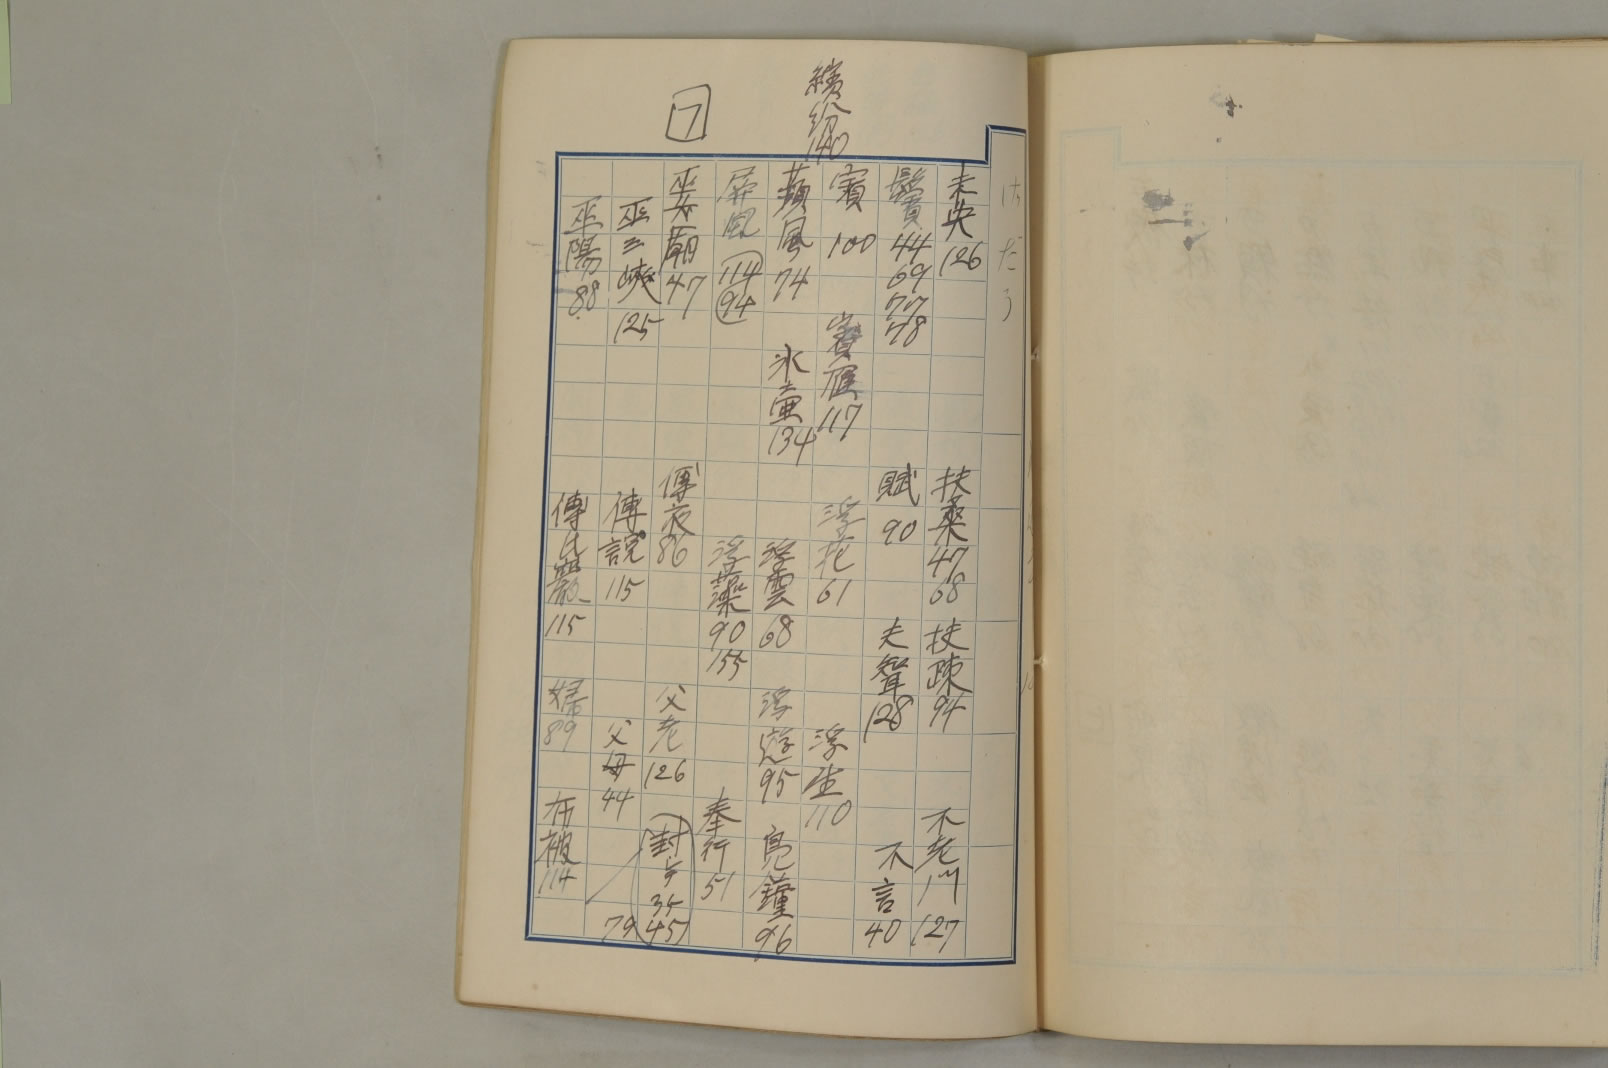 繽紛 140
フ
けだう
未央 126
扶桑 47 68
扶疎 94
不老川 127
鬢 44 69 77 78
賦 90
夫聟 128
不言 40
賓 100
賓雁 117
浮花 61
浮生 110
蘋風 74
氷壷 134
浮雲 68
浮遊 95
鳧鐘 96
屏風 114 94
浮藻 90 155
奉行 51
巫女廟 47
傅衣 86
父老 126
封 35 45
巫三峽 125
傅説 115
父母 44
79
巫陽 88
傅氏巖 115
婦 89
布被 114